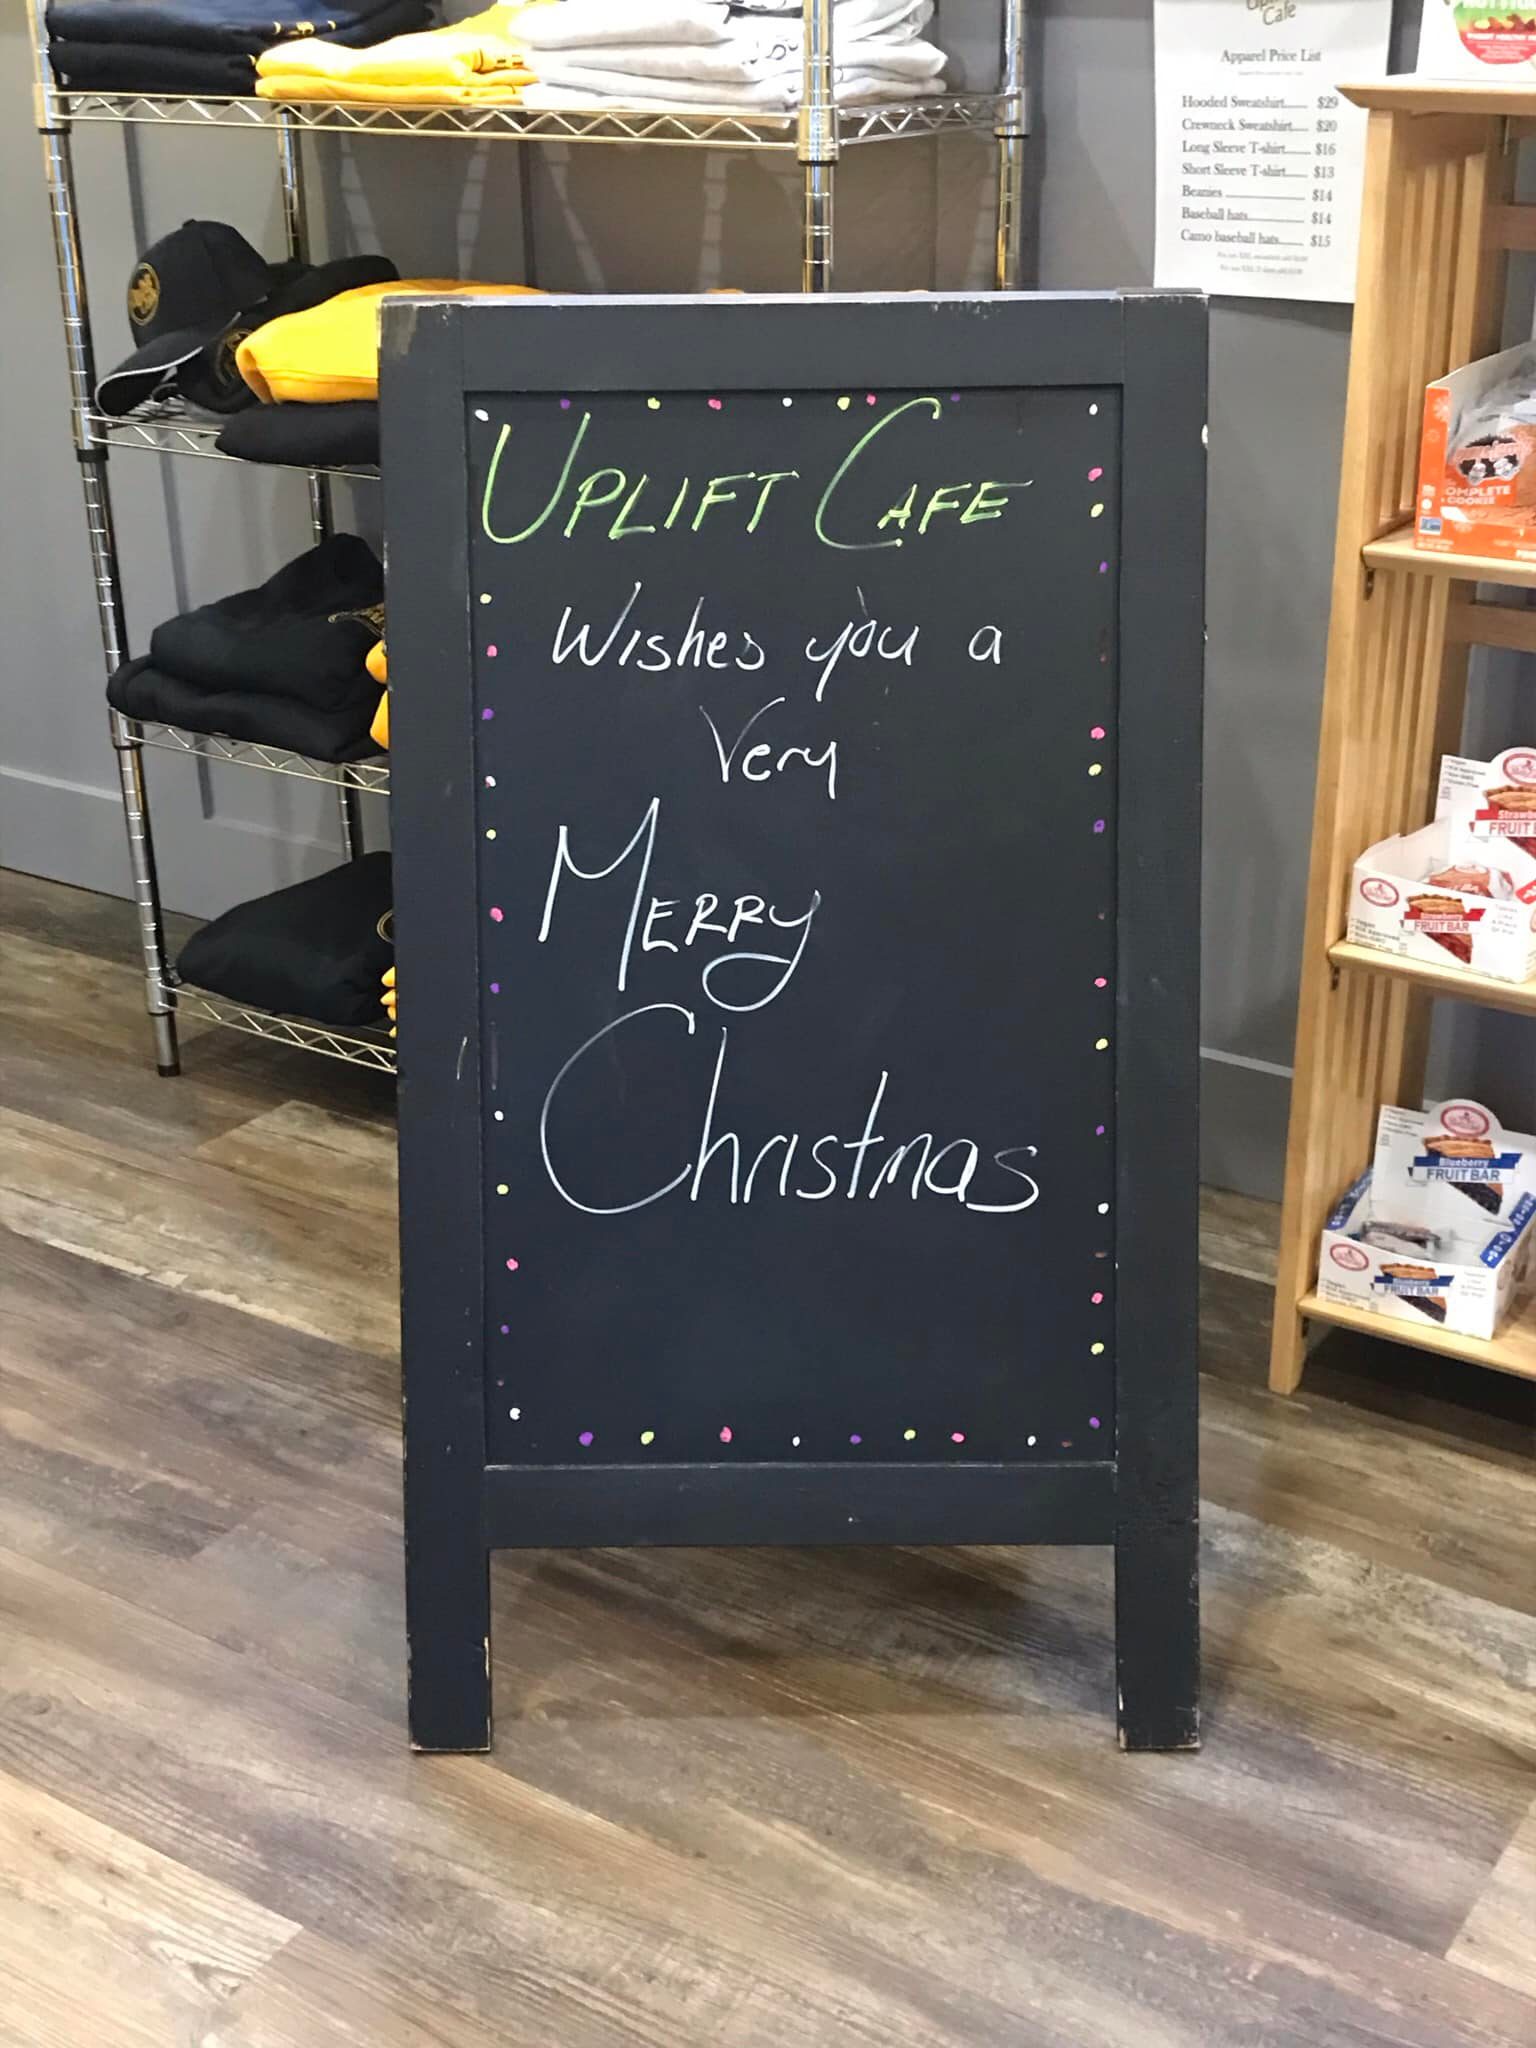 Cafe
Apparel Price List
Hooded Sweatshirt...... $29
Crewneck Sweatshirt..... $20
Long Sleeve T-shirt........ $16
Short Sleeve T-shirt....... $13
Beanies ........................ $14
Baseball hats.................. $14
Camo baseball hats........ $15
UPLIFT CAFE
Wishes you a
Very
MERRY
Christmas
COMPLETE
COOKIE
FRUIT B
Strawberry
FRUIT BAR
Blueberry
FRUIT BAR
FRUIT BAR